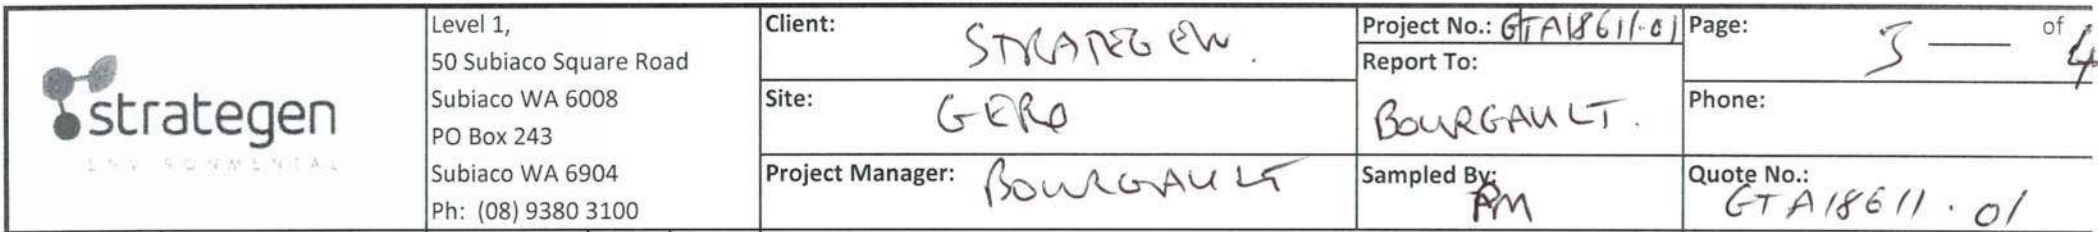 strategen
ENVIRONMENTAL
Level 1,
50 Subiaco Square Road
Subiaco WA 6008
PO Box 243
Subiaco WA 6904
Ph: (08) 9380 3100
Client: STRATEGEN.
Site: GERO
Project Manager: BOURGAULT
Project No.: GTA18611.01
Report To:
BOURGAULT.
Sampled By:
RM
Page: 3 of 4
Phone:
Quote No.:
GTA18611.01